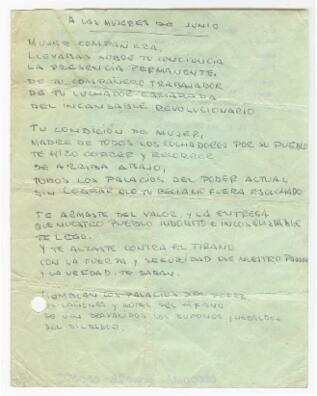 A LAS MUJERES DE JUNIO
MUJER COMPAÑERA,
LLEVABAS SOBRE TU CONCIENCIA
LA PRESENCIA PERMANENTE.
DE TU COMPAÑERO TRABAJADOR
DE TU LUCHADOR CAMARADA
DEL INCANSABLE REVOLUCIONARIO
TU CONDICIÓN DE MUJER,
MADRE DE TODOS LOS LUCHADORES POR SU PUEBLO
TE HIZO CORRER Y RECORRER
DE ARRIBA ABAJO,
TODOS LOS PALACIOS DEL PODER ACTUAL
SIN LOGRAR QUE TU RECLAMO FUERA ESCUCHADO
TE ARMASTE DEL VALOR, Y LA ENTREGA
QUE NUESTRO PUEBLO INDOMITO E INCANSABLE
TE LEGO.
Y TE ALZASTE CONTRA EL TIRANO
CON LA FUERZA Y SEGURIDAD QUE NUESTRO
Y LA VERDAD, TE DABAN.
TIEMBLAN LOS PALACIOS DEL PODER,
LOS CAÑONES Y BOTAS DEL TIRANO
SE VEN
DEL DICTADOR.